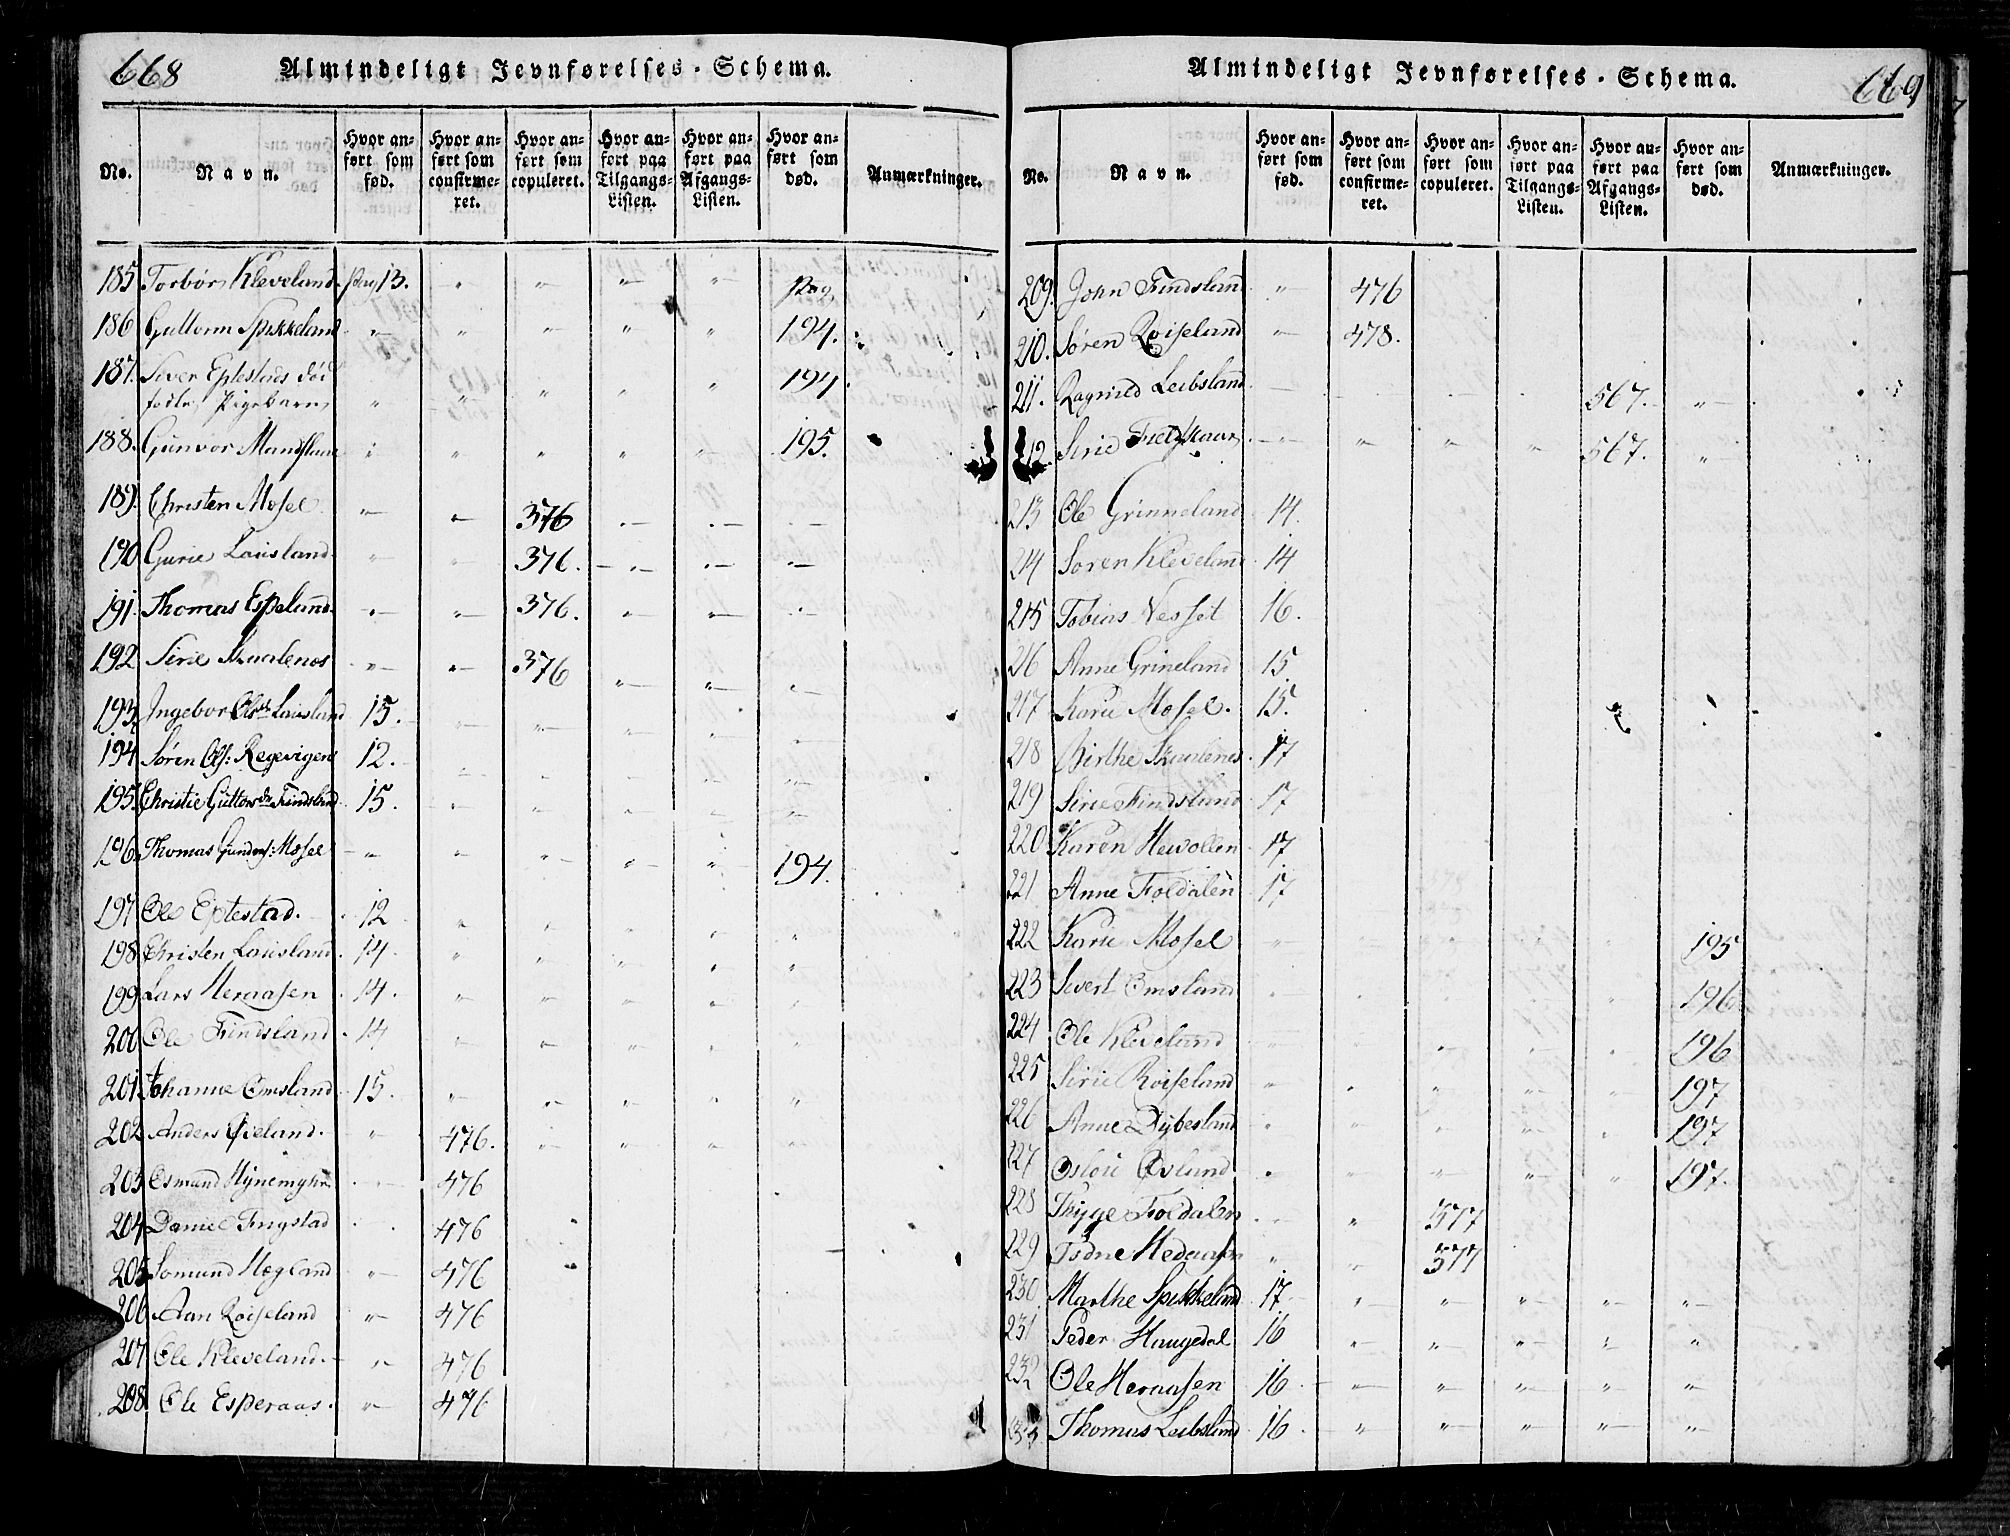 668 Almindeligt Jevnførelses-Schema.
No. Navn. Hvor anført som fød. Hvor anført som confirmeret. Hvor anført som copuleret. Hvor anført paa Tilgangs-Listen. Hvor anført paa Afgangs-Listen. Hvor anført som død. Anmærkninger.
185 Torbør Kleveland pag 13. " " " " pag
186 Guttorm Spikkeland " " " " " 194.
187. Siver Eptestads død
fødte Pigebarn " " " " " 194.
188. Gunvor Mandsland " " " " " 195.
189. Christen Mosel " " 376 " " "
190 Gurie Lauisland " " 376. " " "
191. Thomas Espeland. " " 376. " " "
192 Sirie Skaalenos " " 376 " " "
193. Ingebor Olsdr Lauisland 15. " " " " "
194 Søren Ols: Regevigen 12. " " " " "
195. Christie Guttorsdr Findsland 15. " " " " "
196. Thomas Gunders: Mosel " " " " " 194.
197 Ole Eptestad. 12 " " " " "
198 Christen Lauisland 14. " " " " "
199 Lars Heraasen 14. " " " " "
200 Ole Findsland 14 " " " " "
201 Johanne Omsland 15. " " " " "
202 Anders Øieland. " 476. " " " "
203 Osmund " 476
204 Daniel Fingstad " 476
205 Somund Hægland " 476
206 Aan Roiseland " 476
207 Ole Kleveland. " 476
208. Ole Esperaas. " 476
Almindeligt Jevnførelses-Schema. 669
No. Navn. Hvor anført som fød. Hvor anført som confirmeret. Hvor anført som copuleret. Hvor anført paa Tilgangs-Listen. Hvor anført paa Afgangs-Listen. Hvor anført som død. Anmærkninger.
209. John Findsland " 476
210. Søren Roiseland " 478.
211. Ragnild Leibsland 567. "
212 Sirie " " " " 567. "
213 Ole Grinneland 14.
214 Soren Kleveland 14
215 Tobias Vesset 16.
216 Anne Grineland 15
217 Karie Mosel. 15.
218 Birthe Skaalenes. 17
219 Sirie Findsland 17
220 Karen Hewollen 17
221 Anne Foldalen 17
222 Karie Mosel " " " " " 195
223 Sivert Omsland " " " " " 196
224 Ole Kleveland " " " " " 196
225 Sirie Roiseland " " " " " 197
226 Anne Dybesland " " " " " 197
227 Osloie Øsland " " " " " 197.
228 Thyge Foldalen " " 377
229 Tsdne Hedaasen " " 377
230 Marthe Spikkeland 17 " " " " "
231 Peder Haugedal 16 " " " " "
232 Ole Heraasen 16 " " " " "
233. Thomas Leibsland 16 " " " " "